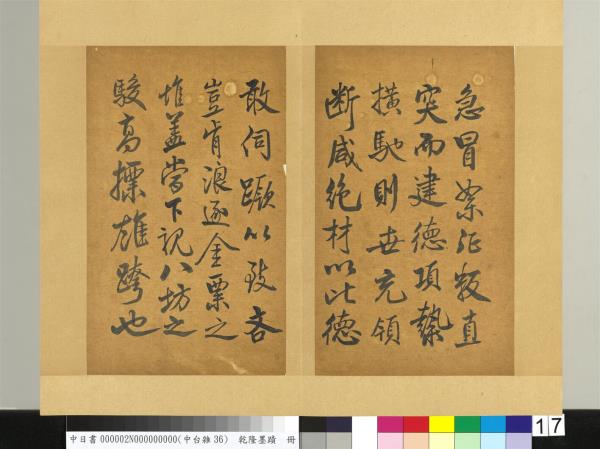 急冒絮征叛直
突而建德項縶
橫馳則世充領
断咸絶材以此德
敢伺蹶以致吝
豈肯浪逐金粟之
堆蓋嘗下視八坊之
駿高摽雄跨也
中日書000002N000000000(中台雜36) 乾隆墨蹟 冊
17